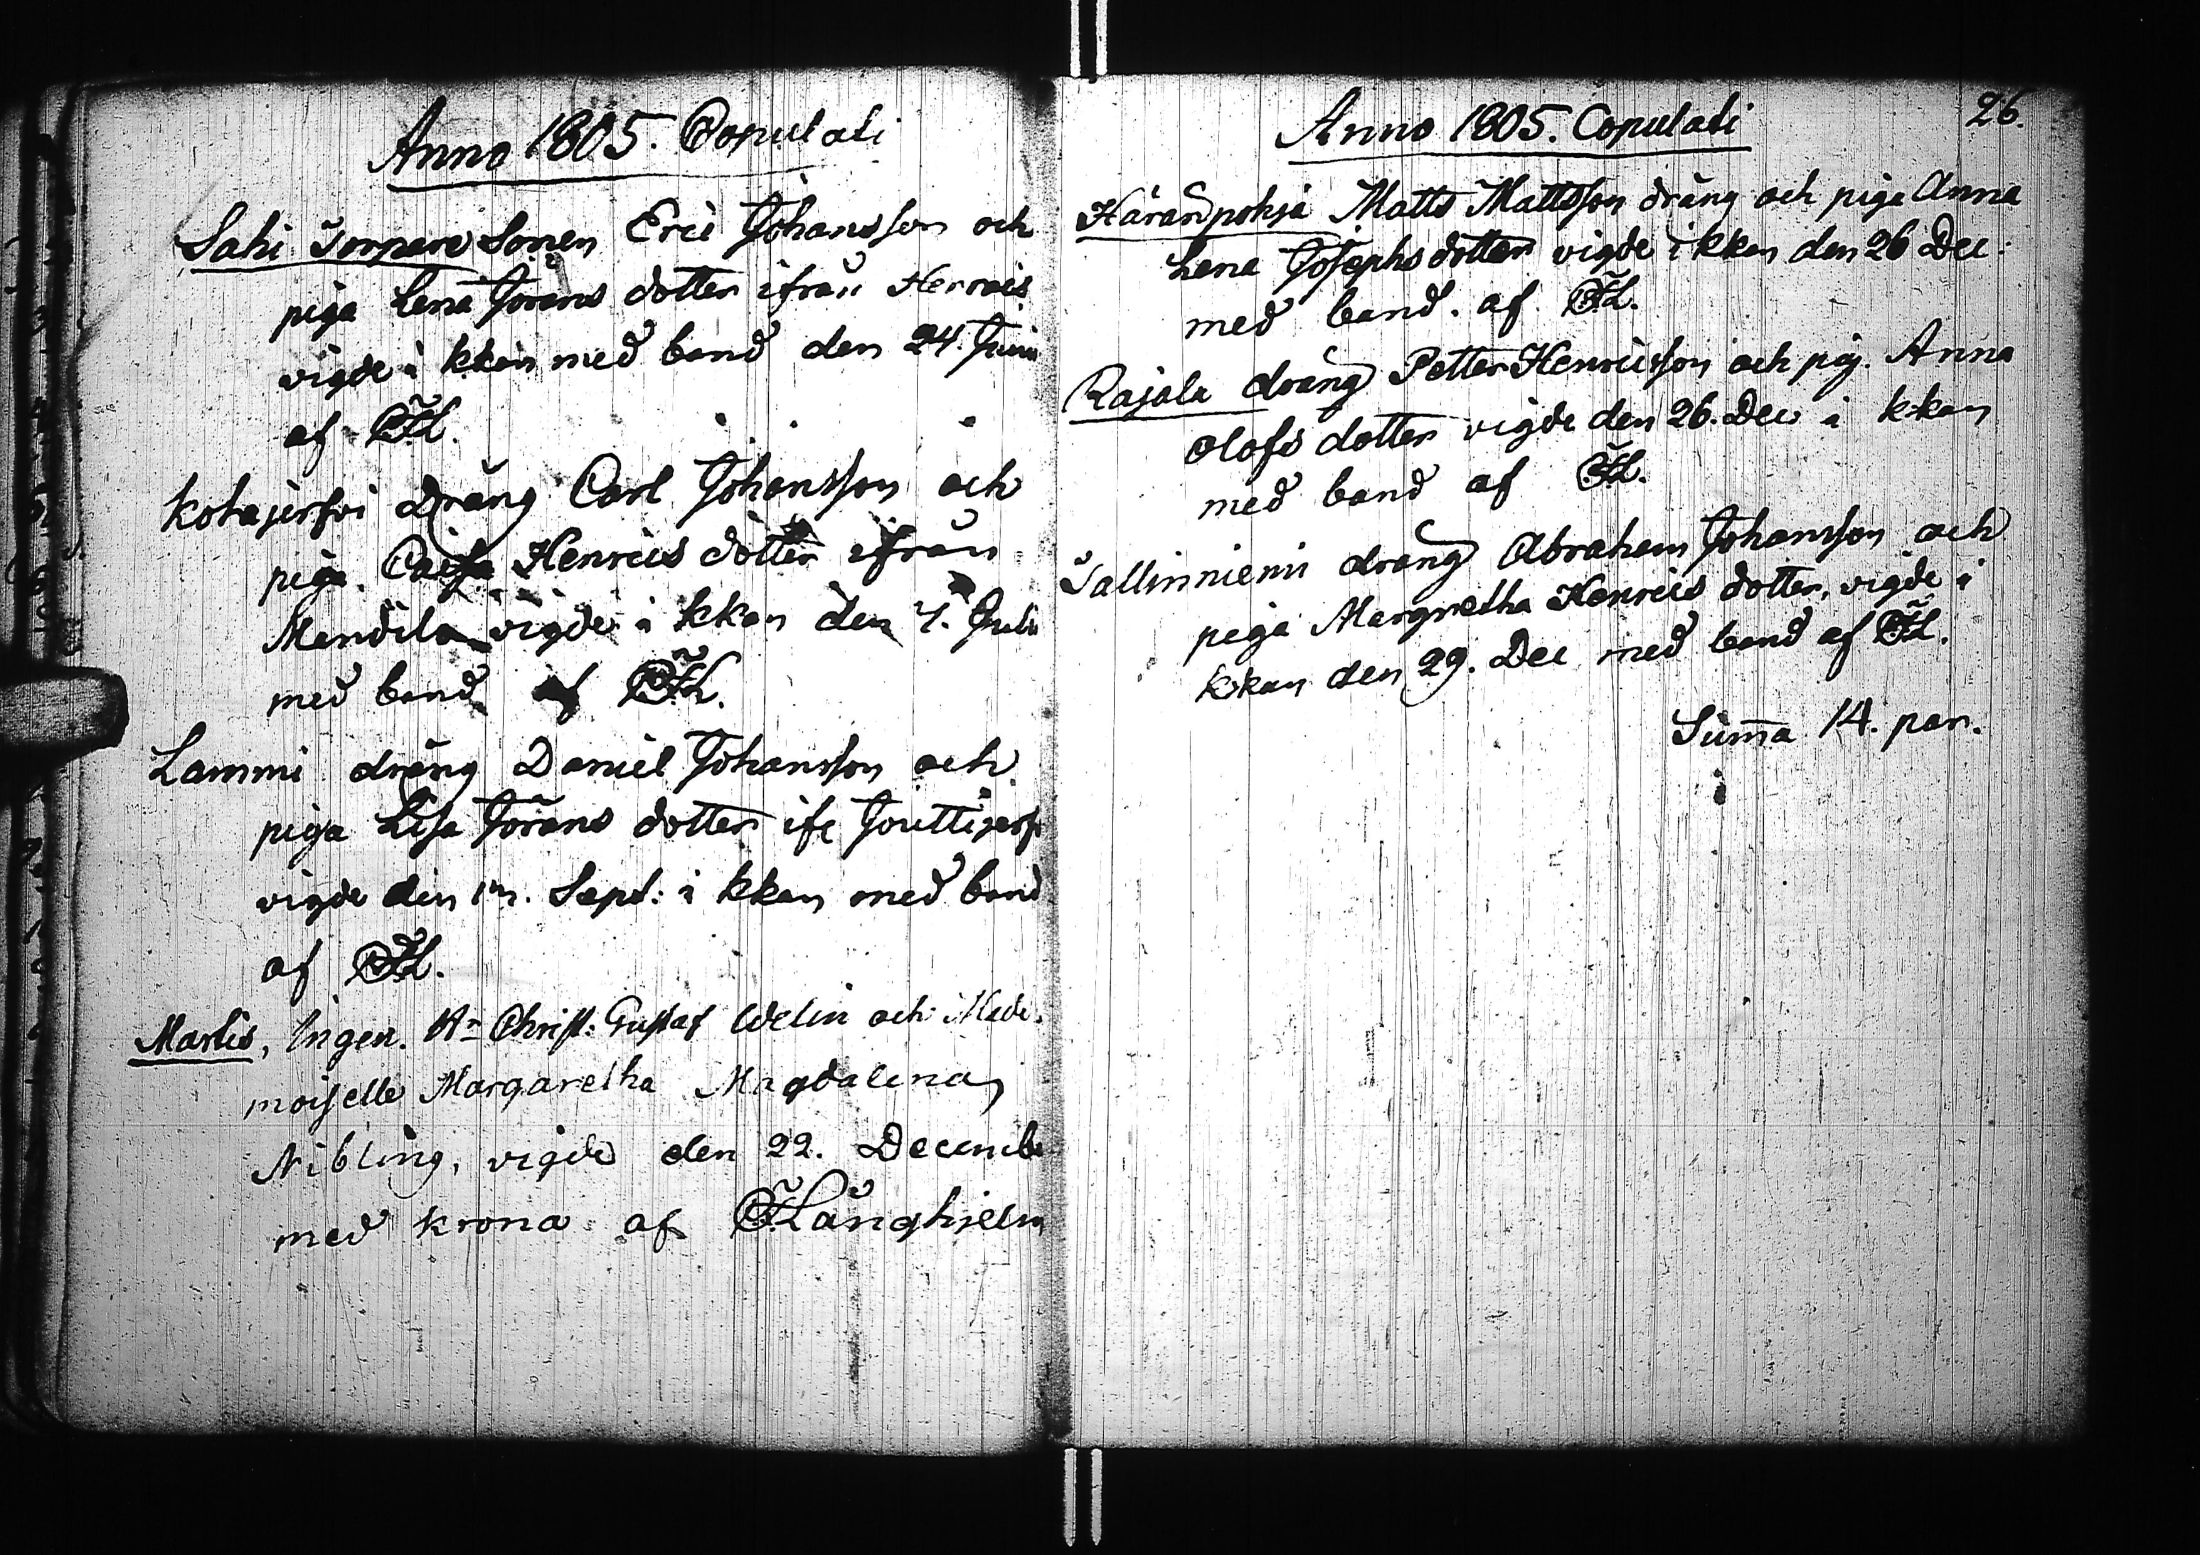 Anno 1805. Copulati
Sahi Torpare Sonen Eric Johansson och
piga Lena Jörans dotter ifrån Herrais
vigde i kkan med band den 24. Junii
af CFL.
Kotajerfvi Dräng Carl Johansson och
piga Caisa Henrics dotter ifrån
Mendila vigde i kkan den 7. Julii
med band af CFL.
Lammi dräng Daniel Johansson och
piga Lisa Jörans dotter ifr Jouttijerf
vigde den 1n. Sept: i kkan med band
af CFL.
Martis, Ingen. Hr Christ: Gustaf Welin och Made-
moiselle Margaretha Magdalena
Nibling, vigde den 22. Decemb
med krona af CFLånghjelm
26.
Anno 1805. Copulati
Häränpohja Matts Mattsson dräng och piga Anna
Lena Josephs dotter vigde i kkan den 26 Dec:
med band. af CFL.
Rajala dräng Petter Henricsson och pig. Anna
Olofs dotter vigde den 26. Dec i kkan
med band af CFL.
Sallinniemi dräng Abraham Johansson och
piga Margretha Henrics dotter, vigde i
kkan den 29. Dec med band af CFL.
Suma 14. par.